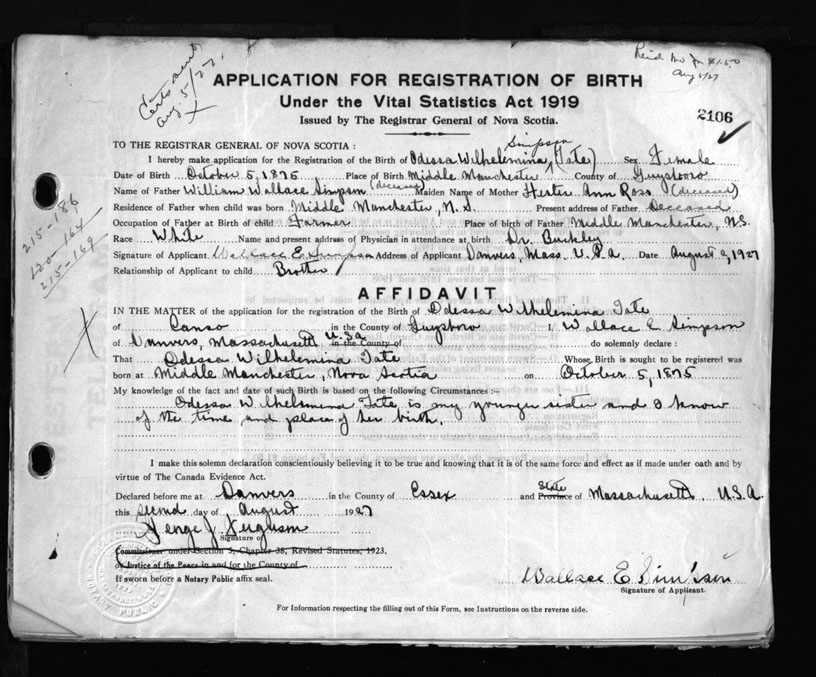 Certs sent
Aug 5/27.
Aug 5/27
APPLICATION FOR REGISTRATION OF BIRTH
Under the Vital Statistics Act 1919
Issued by The Registrar General of Nova Scotia.
2106
TO THE REGISTRAR GENERAL OF NOVA SCOTIA :
Simpson
I hereby make application for the Registration of the Birth of Odessa Wilhelemina (Tate) Sex Female
Date of Birth October 5, 1875 Place of Birth Middle Manchester County of Guysboro
Name of Father William Wallace Simpson (deceased) Maiden Name of Mother Hester Ann Ross (deceased)
Residence of Father when child was born Middle Manchester, N.S. Present address of Father Deceased
Occupation of Father at Birth of child Farmer Place of birth of Father Middle Manchester, N.S.
Race White Name and present address of Physician in attendance at birth Dr. Buckley
Signature of Applicant Wallace E. Simpson Address of Applicant Danvers, Mass. U.S.A. Date August 2, 1927
Relationship of Applicant to child Brother
215-186
120-164
215-169
AFFIDAVIT
IN THE MATTER of the application for the registration of the Birth of Odessa Wilhelemina Tate
of Canso in the County of Guysboro I, Wallace E. Simpson
of Danvers, Massachusetts U.S.A. in the County of do solemnly declare :
That Odessa Wilhelemina Tate Whose Birth is sought to be registered was
born at Middle Manchester, Nova Scotia on October 5, 1875
My knowledge of the fact and date of such Birth is based on the following Circumstances :-
Odessa Wilhelmina Tate is my younger sister and I know
of the time and place of her birth.
I make this solemn declaration conscientiously believing it to be true and knowing that it is of the same force and effect as if made under oath and by
virtue of The Canada Evidence Act.
Declared before me at Danvers in the County of Essex and State Province of Massachusetts, U.S.A.
this second day of August 1927
George J. Ferguson
Signature of
Commissioner under Section 5, Chapter 38, Revised Statutes, 1923,
or Justice of the Peace in and for the County of
If sworn before a Notary Public affix seal.
Wallace E. Simpson
Signature of Applicant.
For Information respecting the filling out of this Form, see Instructions on the reverse side.